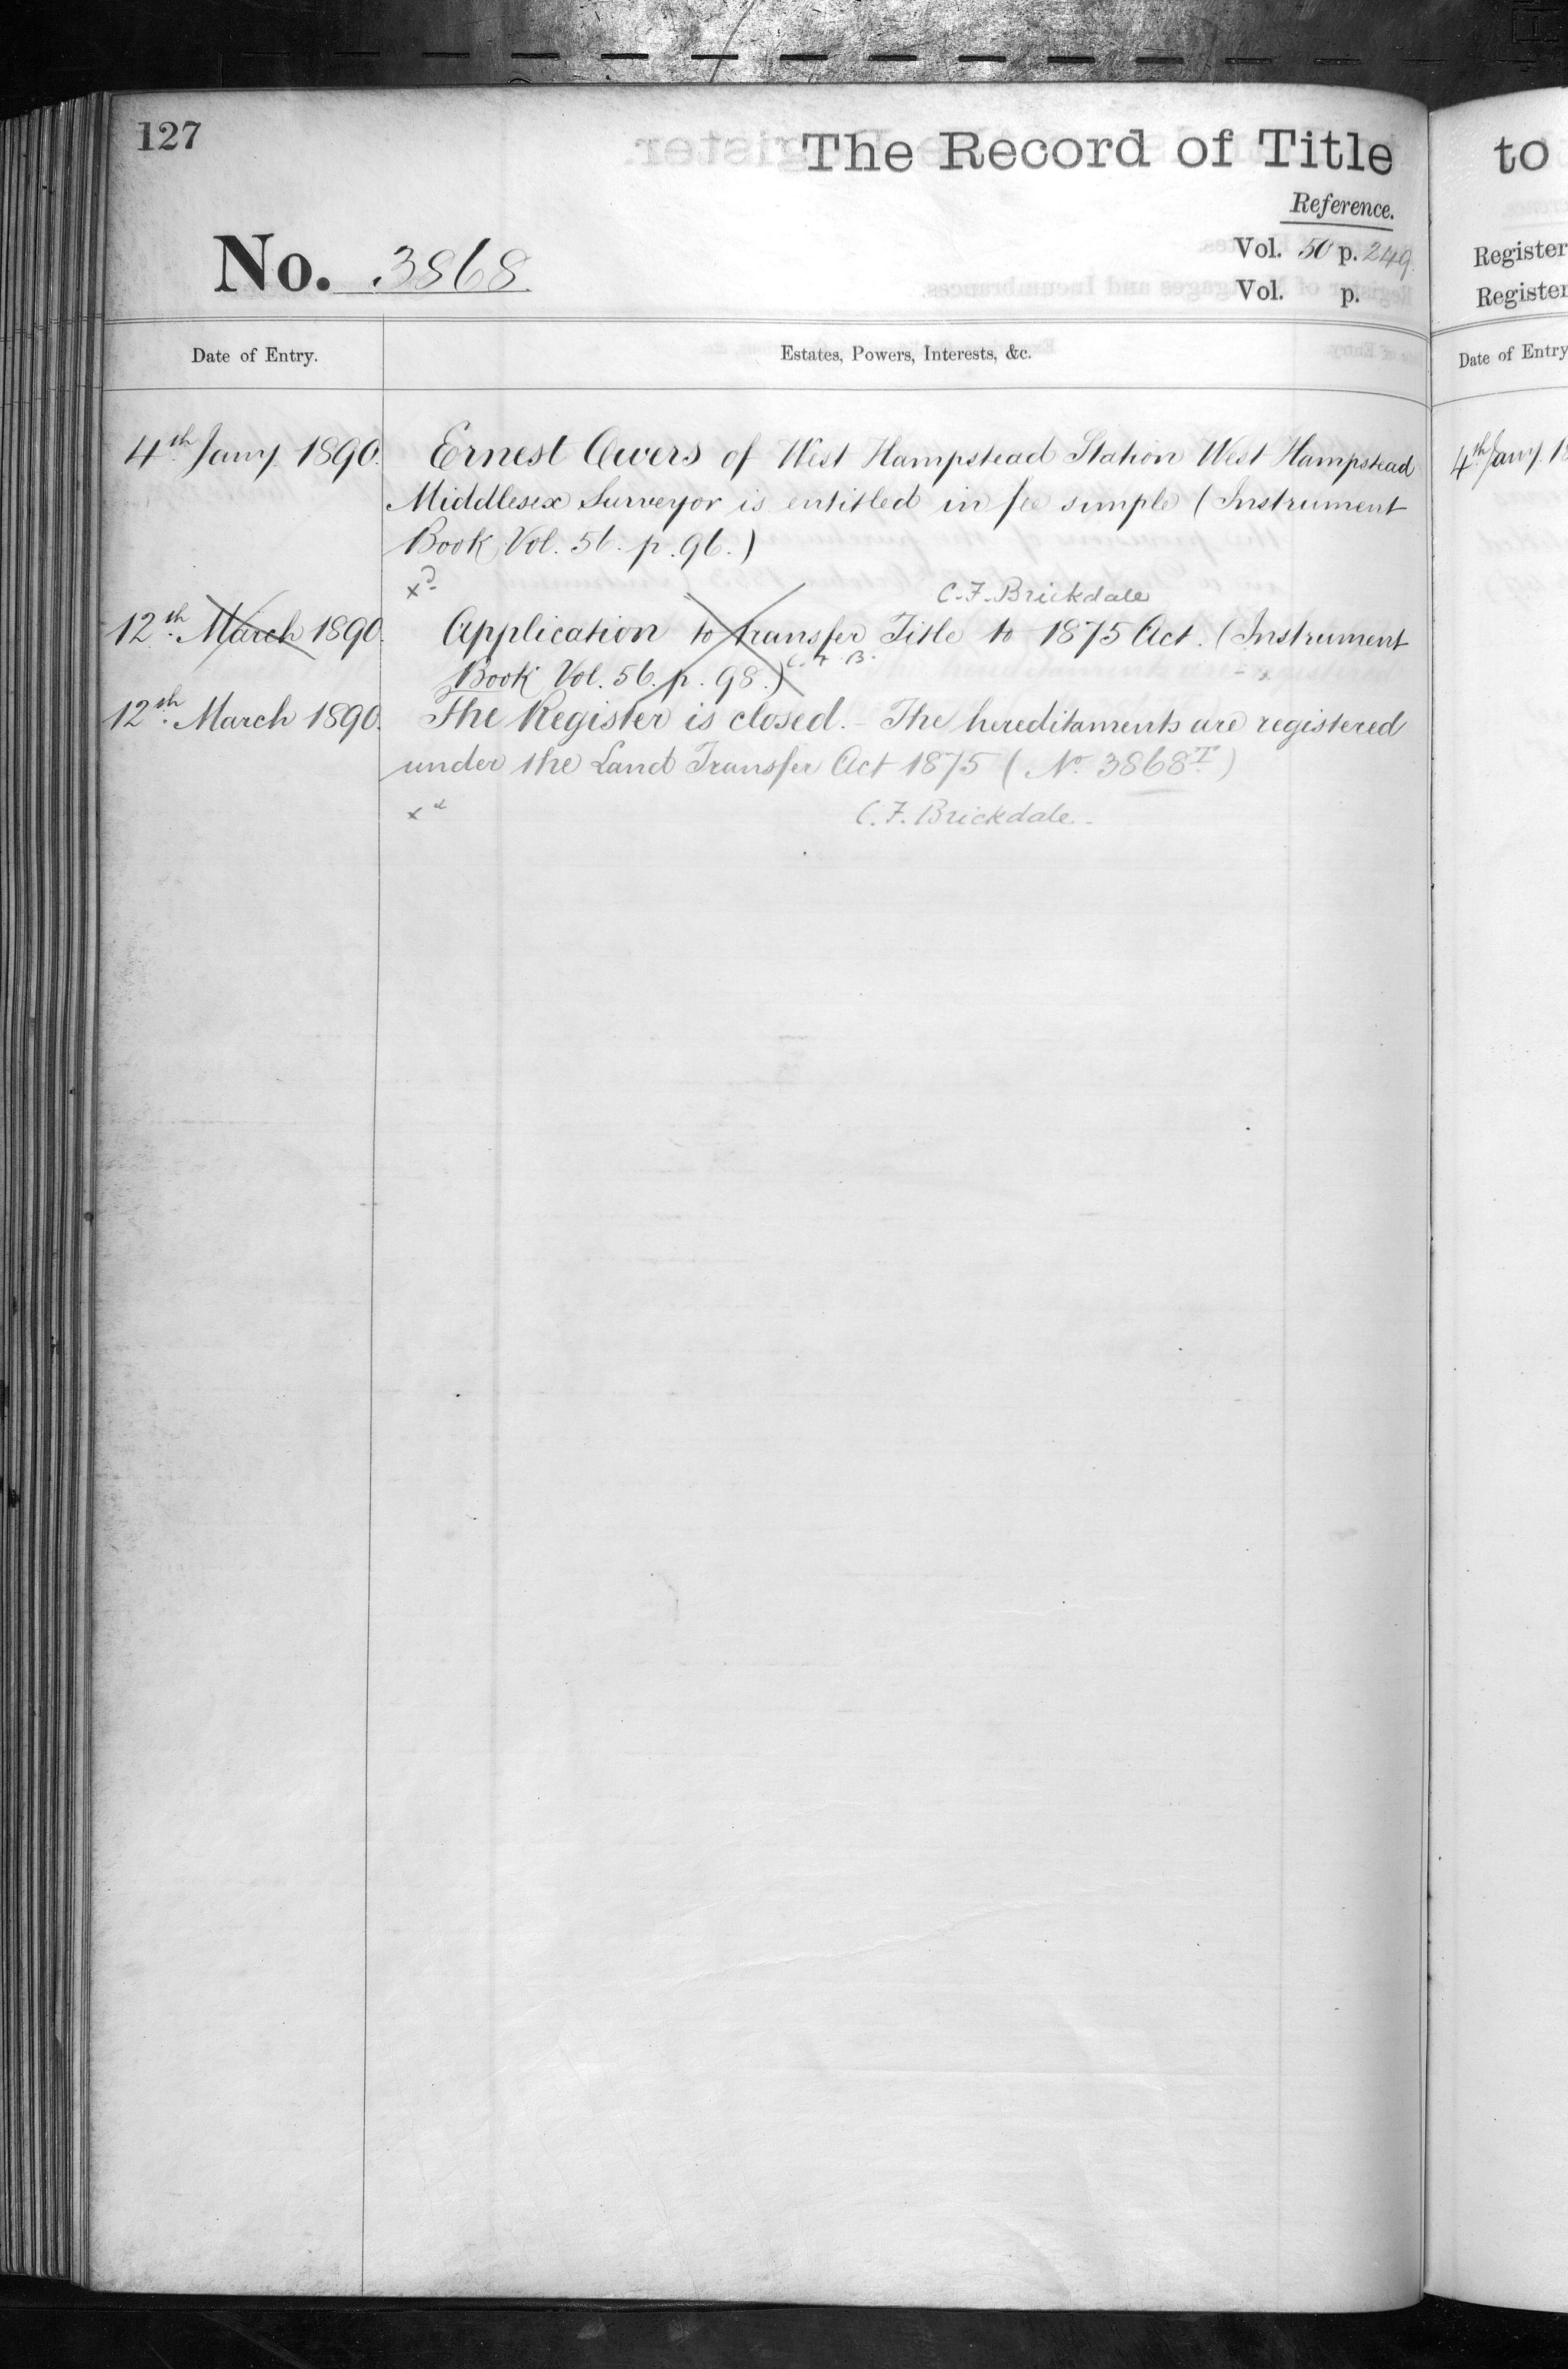 127
The Record of Title
Reference.
No. 3868
Vol. 50 p. 249.
Vol. p.
Date of Entry.
Estates, Powers, Interests, &c.
4th Jany. 1890. Ernest Owers of West Hampstead Station West Hampstead
Middlesex Surveyor is entitled in fee simple (Instrument
Book Vol. 56. p. 96.)
xd C. F. Brickdale
12th March 1890. Application to transfer Title to 1875 Act. (Instrument
Book Vol. 56. p. 98.) C. F. B.
12th March 1890. The Register is closed. - The hereditaments are registered
under the Land Transfer Act 1875 (No. 3868T)
xd C. F. Brickdale.
to
Register
Register
Date of Entry
4th Jany. 18